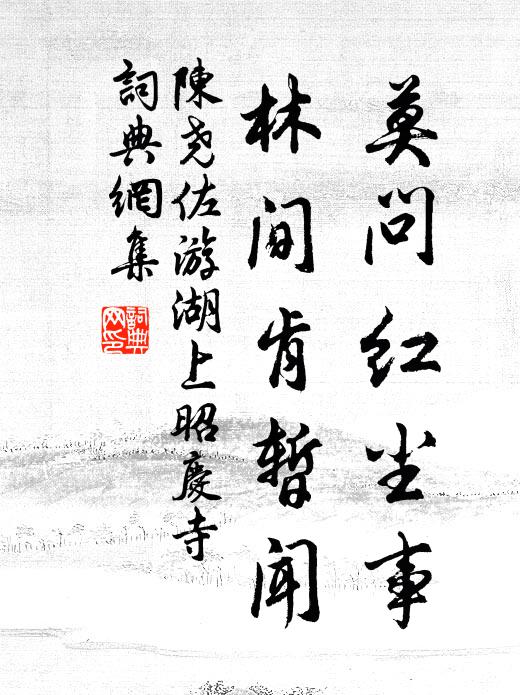 莫问红尘事
林间肯暂闻
陳尧佐游湖上昭慶寺
詞典網集
詞典网印